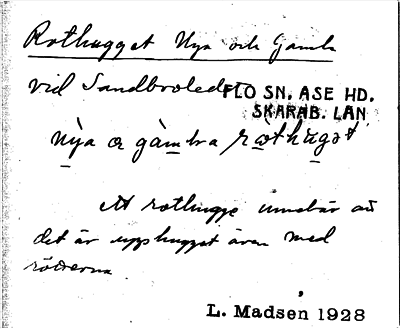 Rothugget Nya och Gamla
vid Sandbroledet
FLO SN. ASE HD.
SKARAB. LÄN
nya o gàmbra ræthuget
At rothugge innebär att
det är upphugget även med
rötterna.
L. Madsen 1928